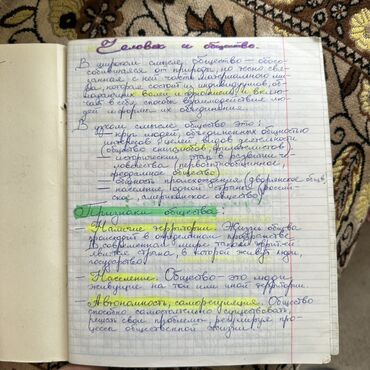 Человек и общество.
В широком смысле, общество - обосо-
собившаяся от природы, но тесно свя-
занная с ней часть материального ми-
ра, которая состоит из индивидуумов, об-
ладающих волей и сознанием, и вклю-
чает в себя способы взаимодействия лю-
дей и формы их объединения.
В узком смысле общество это:
- круг людей, объединённых общностью
интересов, целей, видов деятельности
(общество книголюбов, филателистов)
- исторический этап в развитии че-
ловечества (первобытнообщинное,
феодальное общество)
- общность происхождения (дворянское общ.)
- население одной страны (россий-
ское, американское общество)
Признаки общества:
- Наличие территории. Жизнь общва
проходит в определённом пространстве.
В современном мире такой террито-
рией страна, в которой живут люди,
государство.
- Население. Общество - это люди,
живущие на той или иной территории.
- Автономность, саморегуляция. Общество
способно самостоятельно существовать,
решать свои проблемы, регулируя про-
цессы общественной жизни.